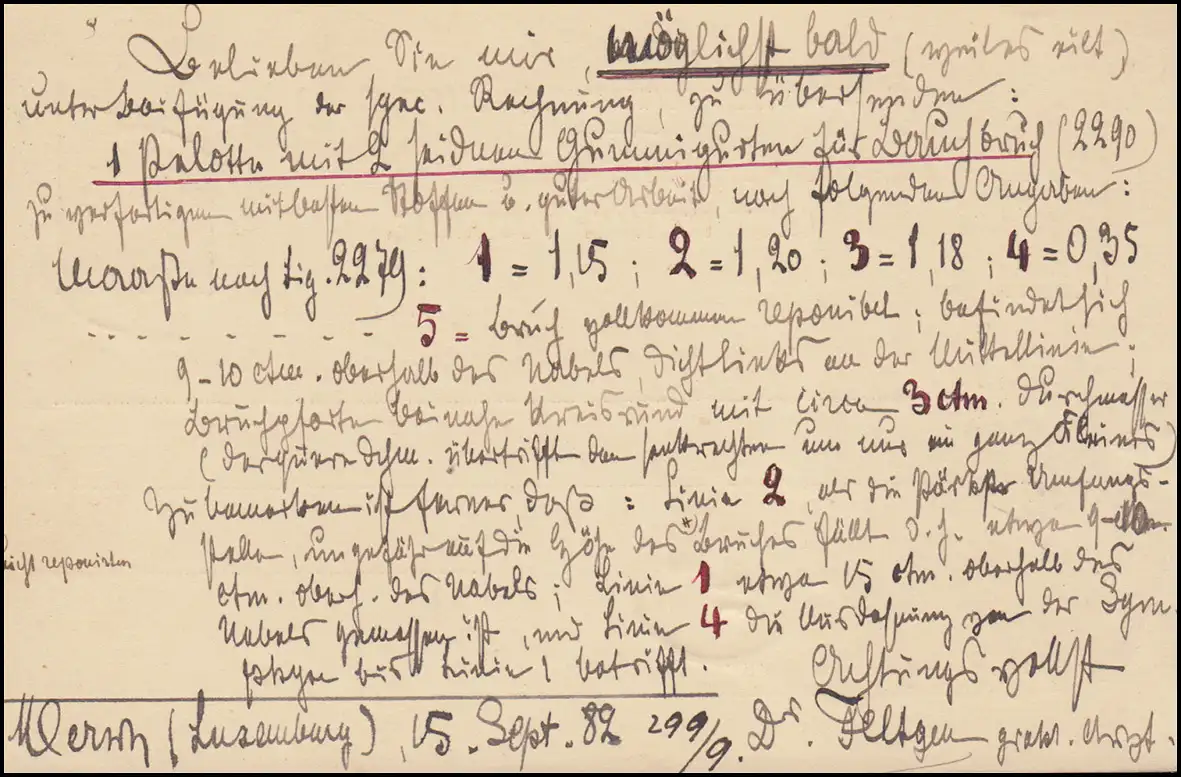 Belieben Sie mir, möglichst bald (weil es eilt)
unter Beifügung der spec. Rechnung, zu übersenden:
1 Pelotte mit 2 seidnen Gummigurten für Bauchbruch (2290)
zu verfertigen mit besten Stoffen u. guter Arbeit, nach folgenden Angaben:
Maaße nach Fig. 2279: 1 = 1,15; 2 = 1,20; 3 = 1,18; 4 = 0,35
5 = Bruch vollkommen reponibel; befindet sich
9-10 ctm. oberhalb des Nabels, dicht links an der Mittellinie;
Bruchpforte beinahe kreisrund mit circa 3 ctm. Durchmesser
(der quere Dchm. übertrifft den senkrechten um nur ein ganz Kleines)
Zu bemerken ist ferner, daß: Linie 2, als die stärkste Umfangs-
stelle, ungefähr auf die Höhe des * Bruches fällt d. h. etwa 9-10
nicht reponirten
ctm. oberh. des Nabels; Linie 1 etwa 15 ctm. oberhalb des
Nabels gemessen ist, und Linie 4 die Ausdehnung von der
bis Linie 1 betrifft.
Achtungsvollst
Mersch (Luxemburg), 15. Sept. 82 299/9. Dr. Feltgen prakt. Arzt.